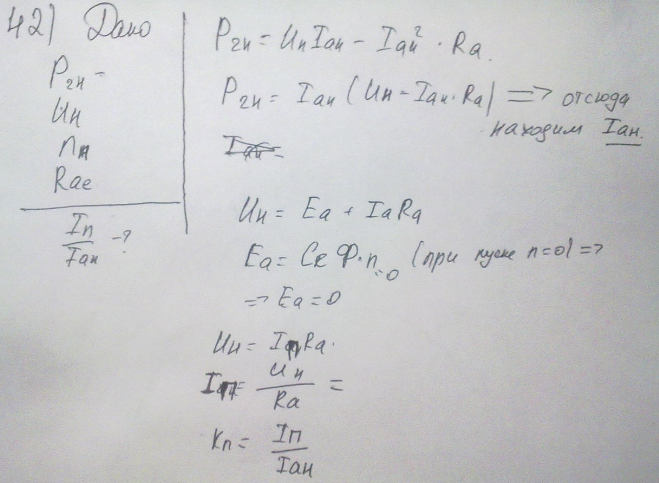 42) Дано
P₂н =
Uн
nн
Rae
Iп/Iан -?
P₂н = UнIан - Iан² · Ra.
P₂н = Iан (Uн - Iан·Ra) => отсюда
находим Iан.
Uн = Ea + IaRa
Ea = CeФ·n=0 (при пуске n=0) =>
=> Ea = 0
Uн = IпRa.
Iп = Uн/Ra =
Kп = Iп/Iан